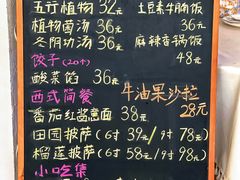 五行植物 32元
植物菌汤 36元
冬阴功汤 36元
饺子(20个)
酸菜馅 36元
西式简餐
番茄红酱意面 38元
田园披萨(6寸 39元/9寸 78元)
榴莲披萨(6寸 58元/9寸 98元)
小吃集
土豆素牛腩饭
36元
麻辣香锅饭
48元
牛油果沙拉
28元